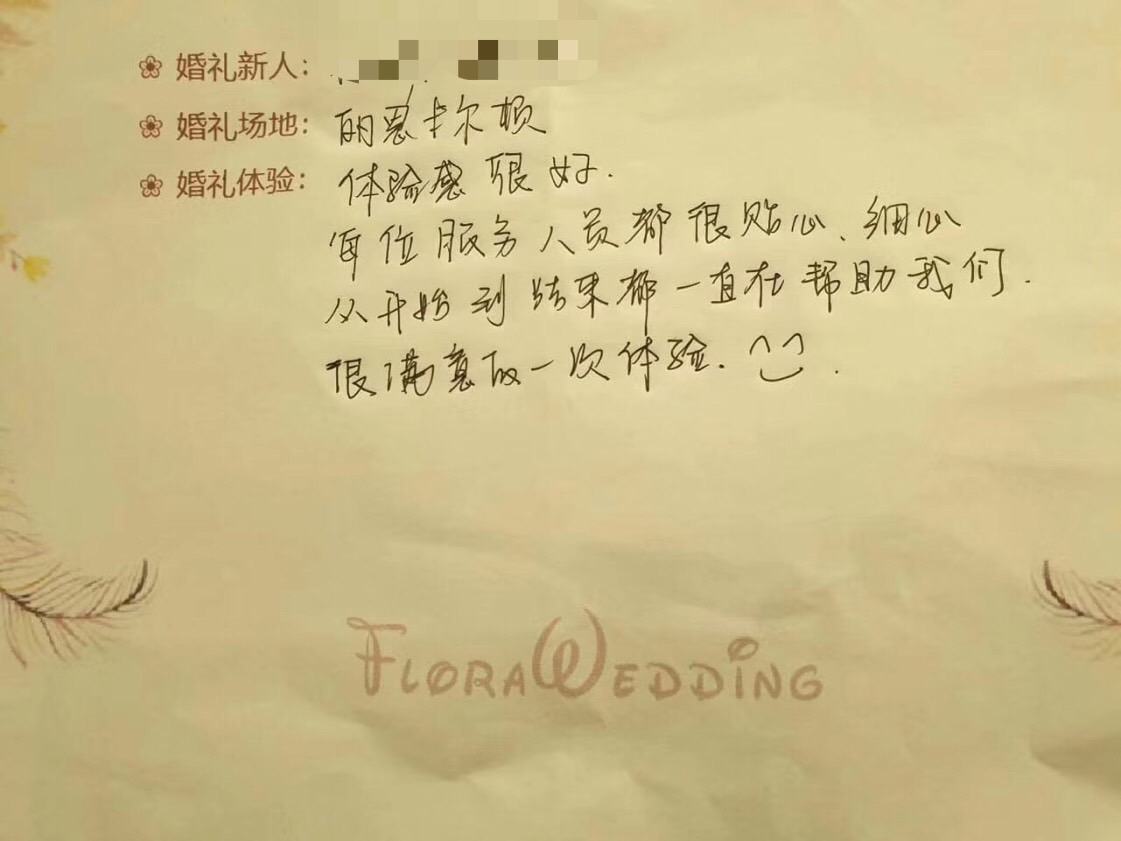 婚礼新人：
婚礼场地：丽思卡尔顿
婚礼体验：体验感很好.
每位服务人员都很贴心、细心
从开始到结束都一直在帮助我们.
很满意的一次体验.
FLORA WEDDING